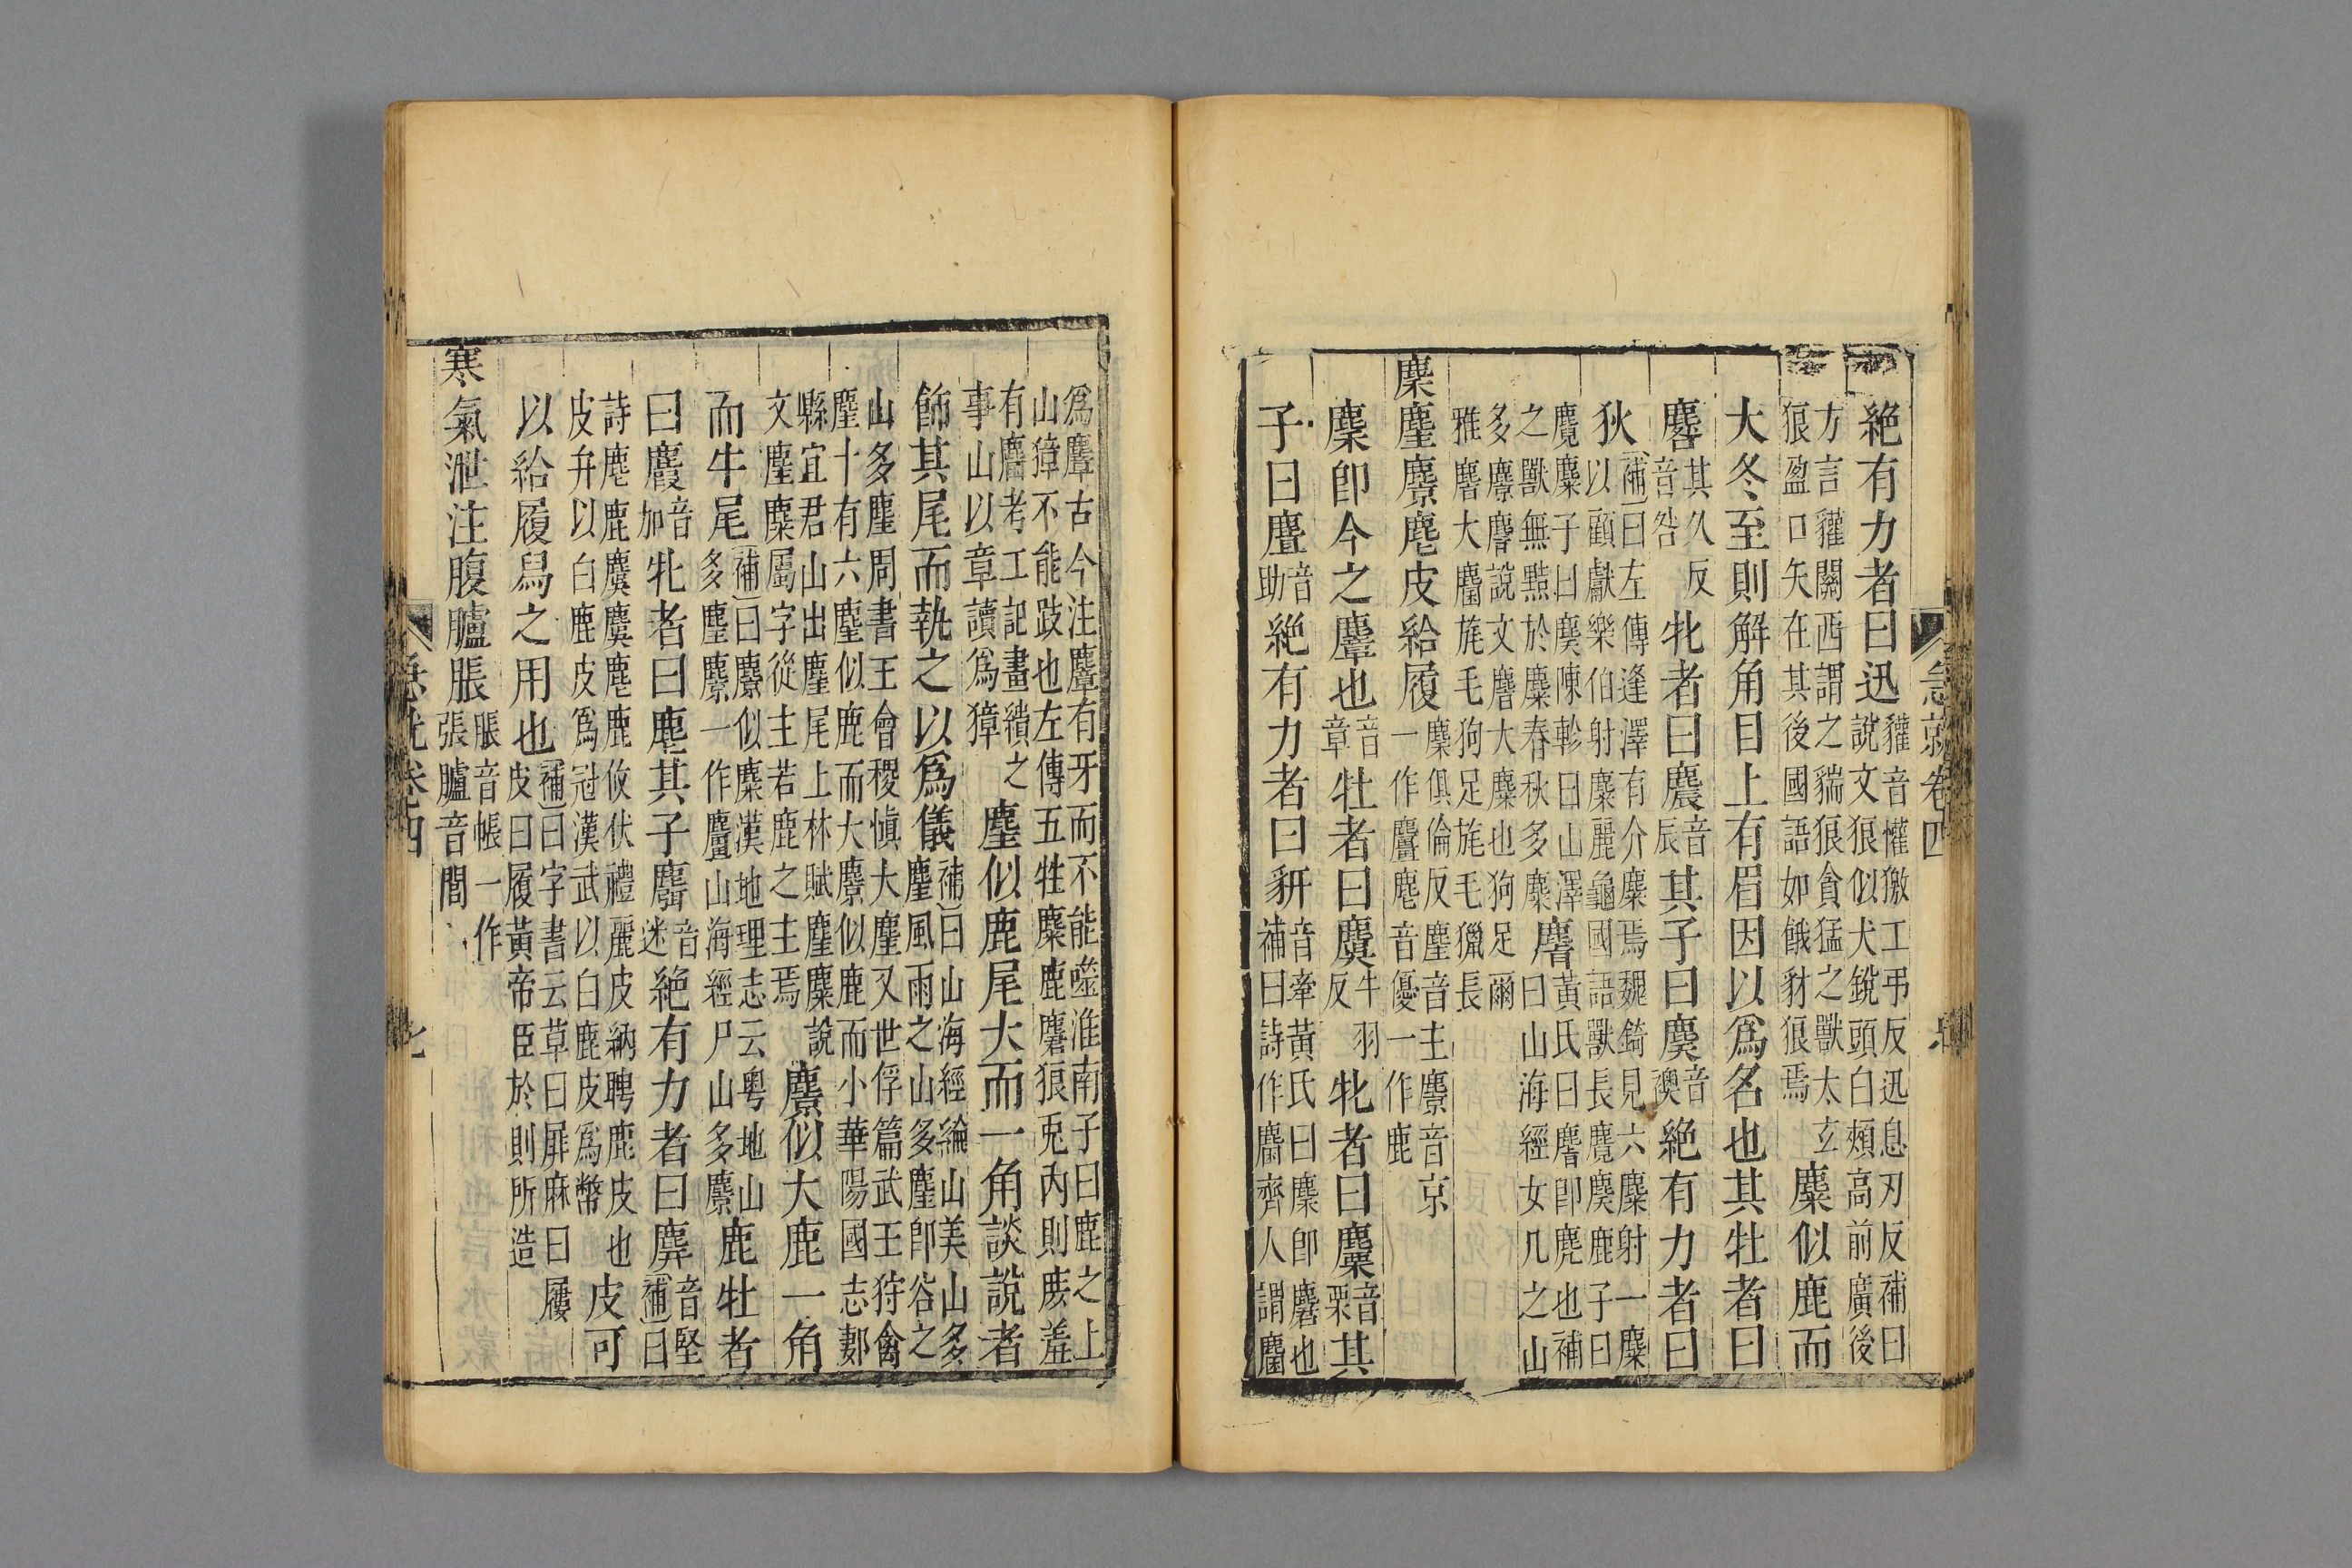 急就卷四
絶有力者曰迅 貛音懽獥工弔反迅息刃反補曰
說文狼似犬銳頭白頰高前廣後
方言貛關西謂之貒狼貪猛之獸太玄
狼盈口矢在其後國語如餓豺狼焉 麋似鹿而
大冬至則解角目上有眉因以爲名也其牡者曰
麔 其久反
音咎 牝者曰麎 音
辰 其子曰䴠 音
襖 絶有力者曰
狄 補曰左傳逢澤有介麋焉魏錡見六麋射一麋
以顧獻樂伯射麋麗龜國語獸長麑䴠鹿子曰
麑麋子曰䴠陳軫曰山澤
之獸無黠於麋春秋多麋 麐 黃氏曰麐卽麂也補
曰山海經女几之山
多麖麐說文麐大麋也狗足爾
雅麐大麕旄毛狗足旄毛獵長
麇麈麖麀皮給履 麇俱倫反麈音主麖音京
一作麠麀音優一作鹿
麇卽今之麞也 音
章 牡者曰麌 牛羽
反 牝者曰麜 音
栗 其
子曰䴢 音
助 絶有力者曰豣 音牽黃氏曰麇卽麏也
補曰詩作麕齊人謂麕
爲麞古今注麞有牙而不能噬淮南子曰鹿之上
山獐不能跂也左傳五牲麋鹿麏狼兎內則庪羞
有麕考工記畫繢之
事山以章讀爲獐 麈似鹿尾大而一角談說者
飾其尾而執之以爲儀 補曰山海經綸山美山多
麈風雨之山多麈卽谷之
山多麈周書王會稷愼大麈又世俘篇武王狩禽
麈十有六麈似鹿而大麖似鹿而小華陽國志郪
縣宜君山出麈尾上林賦麈麋說
文麈麋屬字從主若鹿之主焉 麖似大鹿一角
而牛尾 補曰麖似麋漢地理志云粤地山
多麈麖一作麠山海經尸山多麖 鹿牡者
曰麚 音
加 牝者曰麀其子麛 音
迷 絶有力者曰麉 音堅
補曰
詩麀鹿麌麌麀鹿攸伏禮麗皮納聘鹿皮也
皮弁以白鹿皮爲冠漢武以白鹿皮爲幣 皮可
以給履舄之用也 補曰字書云草曰屝麻曰屨
皮曰履黃帝臣於則所造
寒氣泄注腹臚脹 脹音帳一作
張臚音閭
卷四